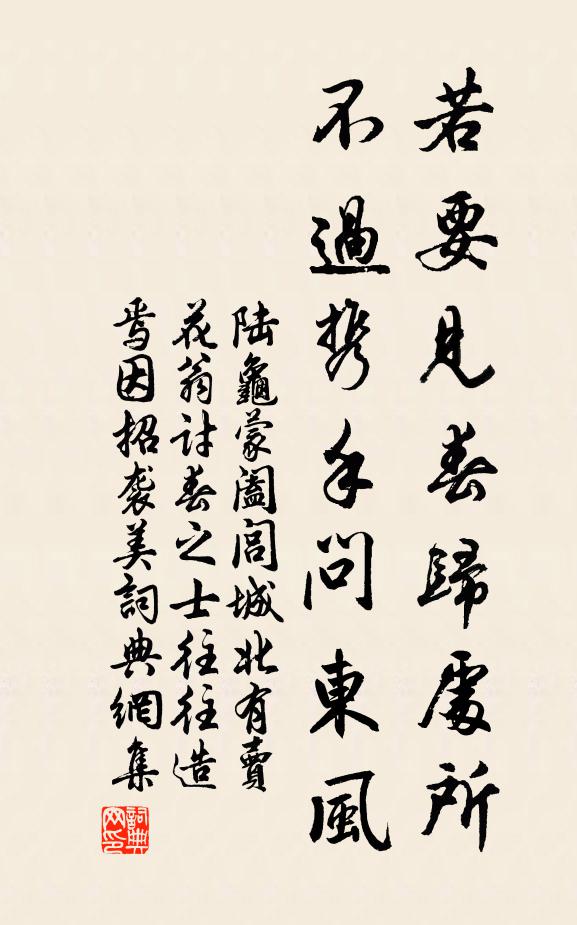 若要見春歸處所
不過携手問東風
陸龜蒙闔閭城北有賣
花翁討春之士往往造
焉因招襲美詞典網集
詞典網印